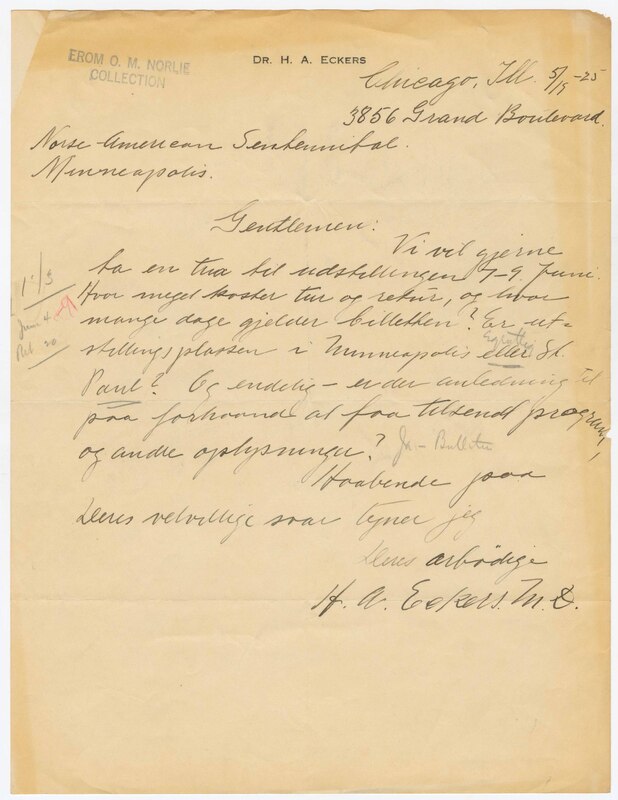 DR. H. A. ECKERS
FROM O. M. NORLIE
COLLECTION
Chicago, Ill. 5/15-25
3856 Grand Boulevard.
Norse-American Sentennibal.
Minneapolis.
Gentlemen:
Vi vil gjerne
ta en tur til udstillingen 7-9 Juni.
Hvor meget koster tur og retur, og hvor
mange dage gjelder billetten? Er ut-
stillingsplassen i Minneapolis eller St.
Paul? Og endelig – er der anledning til
paa forhaand at faa tilsendt program
og andre oplysninger? Ja – Bulletin
Haabende paa
Deres velvillige svar tegner jeg
Deres ærbødige
H. A. Eckers. M.D.
1 1/3
June 4
Ret 20